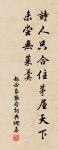 詩人只合住茅屋天下
未嘗無菜羹